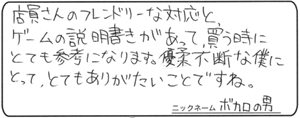 店員さんのフレンドリーな対応と、
ゲームの説明書きがあって、買う時に
とても参考になります。優柔不断な僕に
とって、とてもありがたいことですね。
ニックネーム ボカロの男